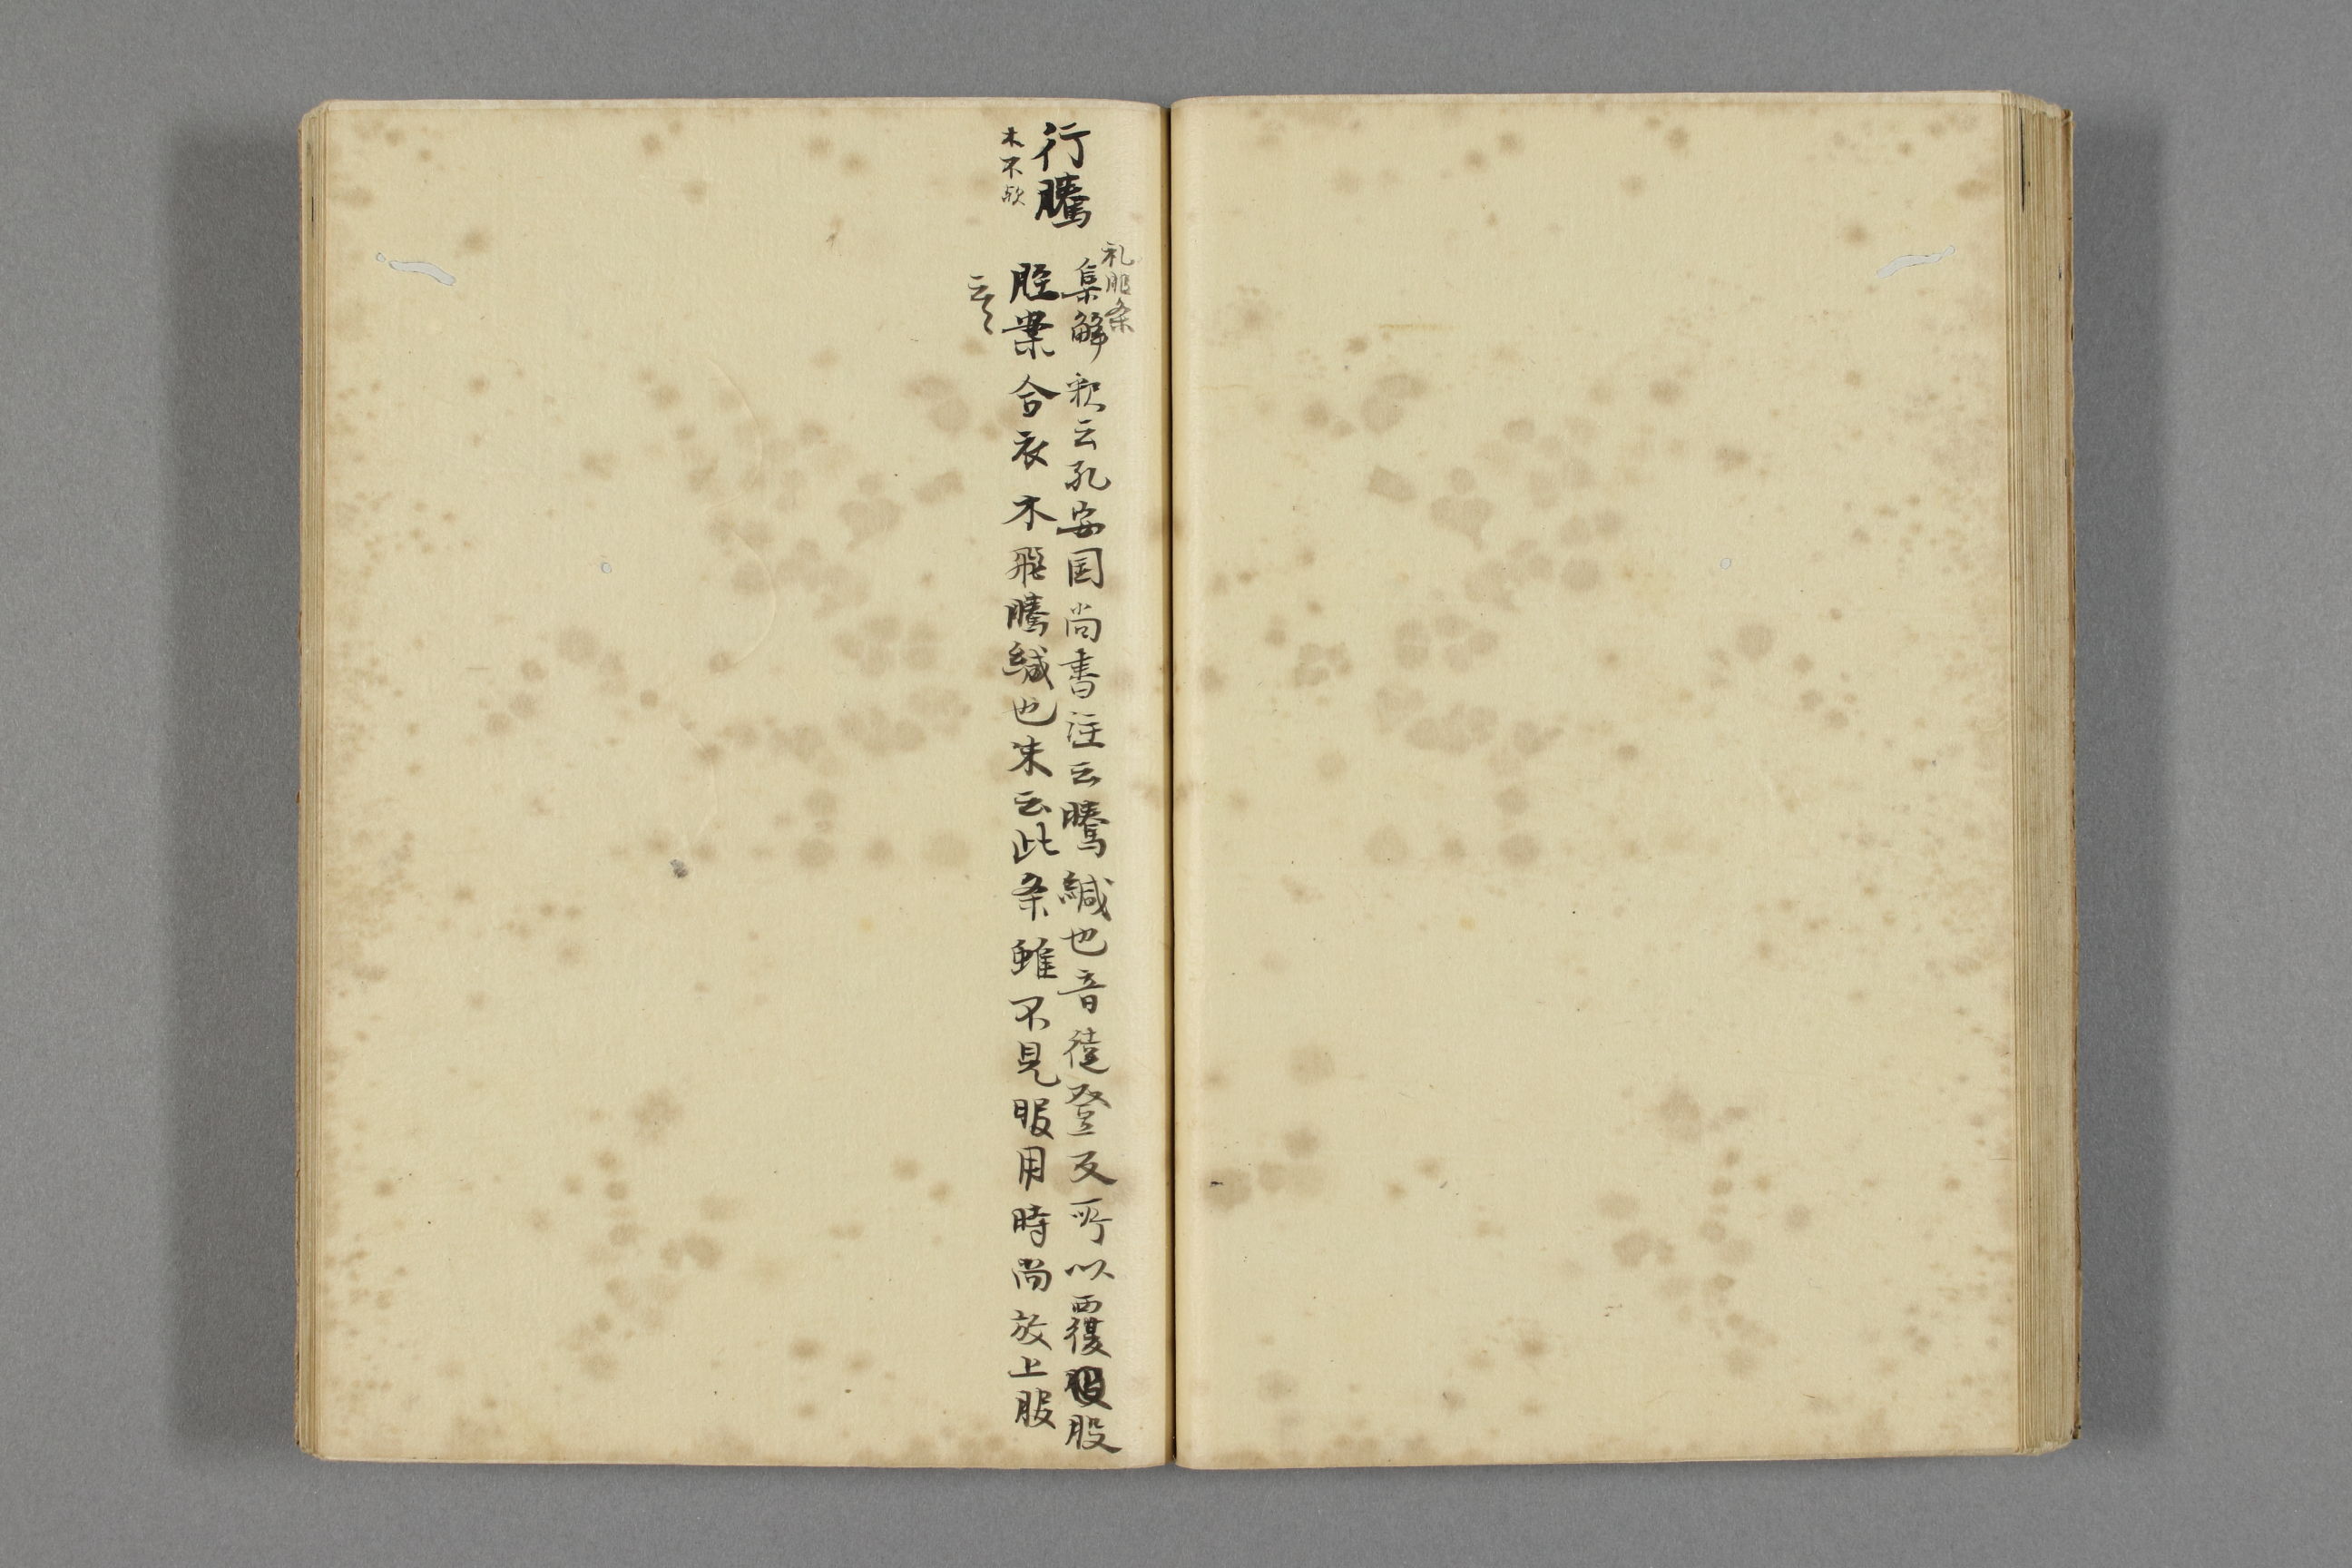 礼服条
行騰
集解釈云孔安国尚書注云騰緘也音徒登反所以覆股
木不欤
脛案合衣不飛騰緘也朱云此条雖不見服用時尚放上服
云々